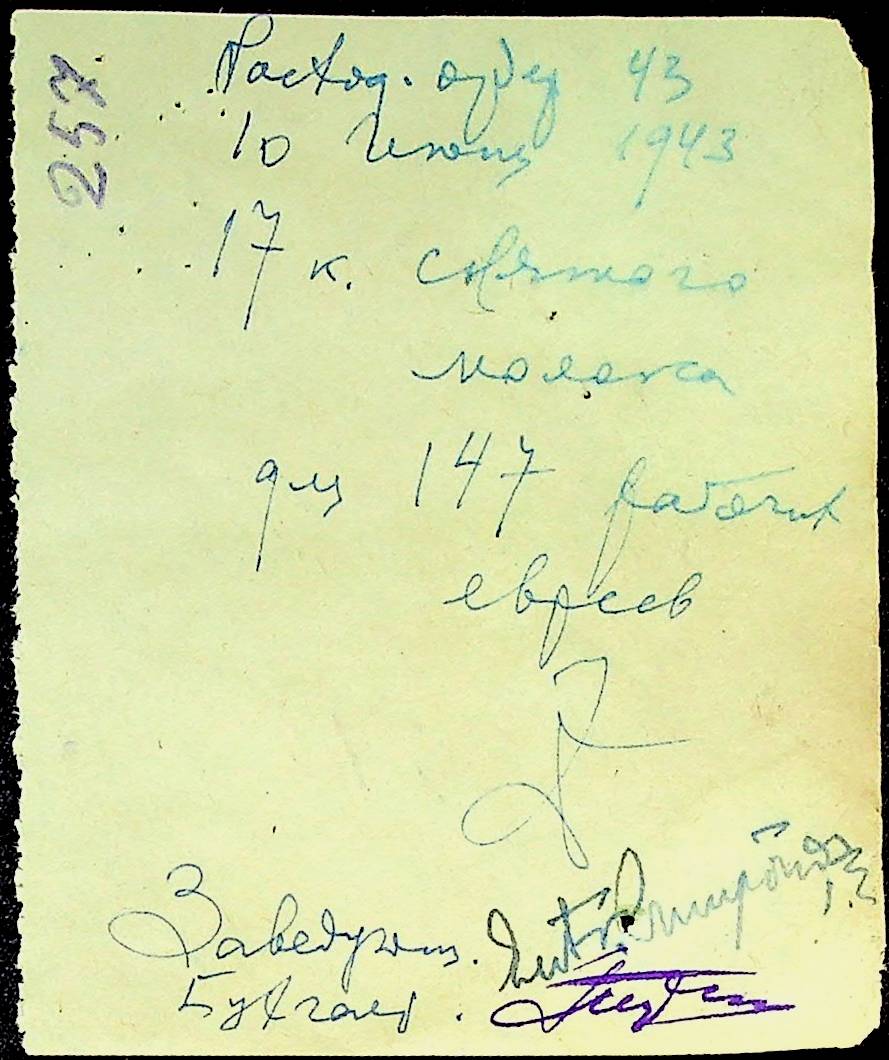 257.
Расход. ордер 43
10 Июня 1943
17 к. снятого
молока
для 147 рабочих
евреев
Заведующ.
Бухгалт.